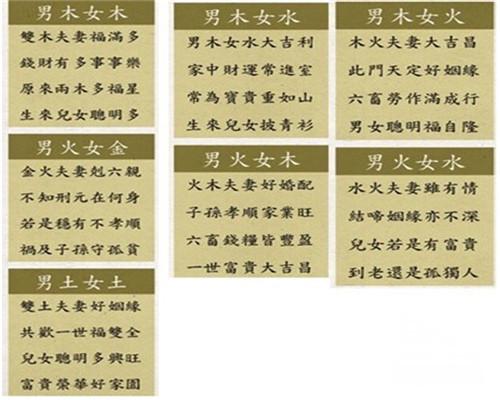 男木女木
雙木夫妻福滿多
錢財有多事事樂
原來兩木多福星
生來兒女聰明多
男木女水
男木女水大吉利
家中財運常進室
常為寶貴重如山
生來兒女披青衫
男木女火
木火夫妻大吉昌
此門天定好姻緣
六畜勞作滿成行
男女聰明福自隆
男火女金
金火夫妻剋六親
不知刑元在何身
若是穩有不孝順
禍及子孫守孤貧
男火女木
火木夫妻好婚配
子孫孝順家業旺
六畜錢糧皆豐盈
一世富貴大吉昌
男火女水
水火夫妻雖有情
結啼姻緣亦不深
兒女若是有富貴
到老還是孤獨人
男土女土
雙土夫妻好姻緣
共歡一世福雙全
兒女聰明多興旺
富貴榮華好家園